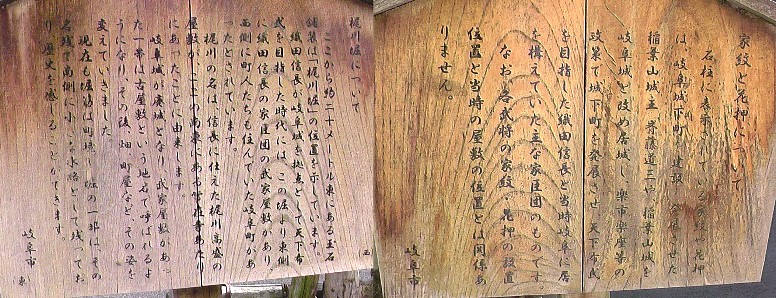 梶川堀について
ここから約二十メートル東にある玉石
舗装は「梶川堀」の位置を示しています。
織田信長が岐阜城を拠点として天下布
武を目指した時代には、この堀より東側
に織田信長の家臣団の武家屋敷があり、
西側に町人たちも住んでいた岐阜町があ
ったとされています。
梶川の名は、信長に仕えた梶川高盛の
屋敷が、ここの南東にある
にあったことに由来します。
岐阜城が廃城となり、武家屋敷があっ
た一帯は古屋敷という地名で呼ばれるよ
うになり、その後、畑、町屋など、その姿を
変えていきました。
現在も堀筋は町境、堀の一部はその
名残で南側に小さな水路として残ってお
り、歴史を感じることができます。
岐阜市
西
東
家紋と花押について
石柱に表示されている家紋や花押
は、岐阜城下町を建設、させた
稲葉山城主 斉藤道三や、稲葉山城を
岐阜城と改め居城し、楽市楽座等の
政策で城下町を発展させ、天下布武
を目指した織田信長と当時岐阜に居
を構えていた主な家臣団のものです。
なお、各武将の家紋、花押の設置
位置と当時の屋敷の位置とは関係あ
りません。
岐阜市